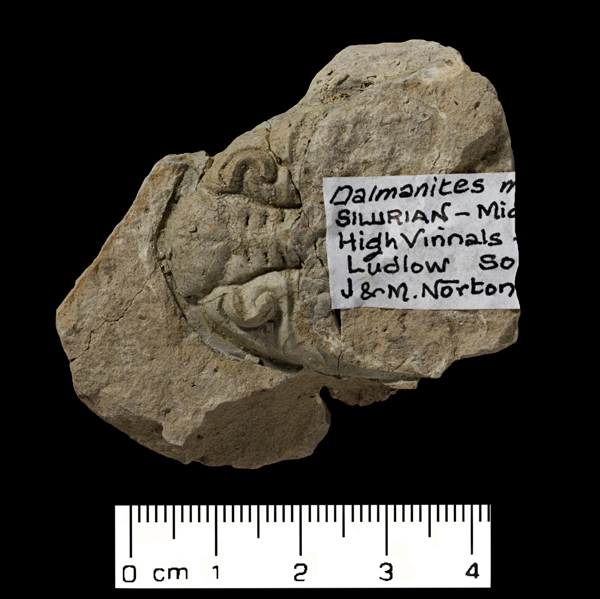 Dalmanites m
SILURIAN - Mid
High Vinnals -
Ludlow So
J & M. Norton
0 cm 1 2 3 4